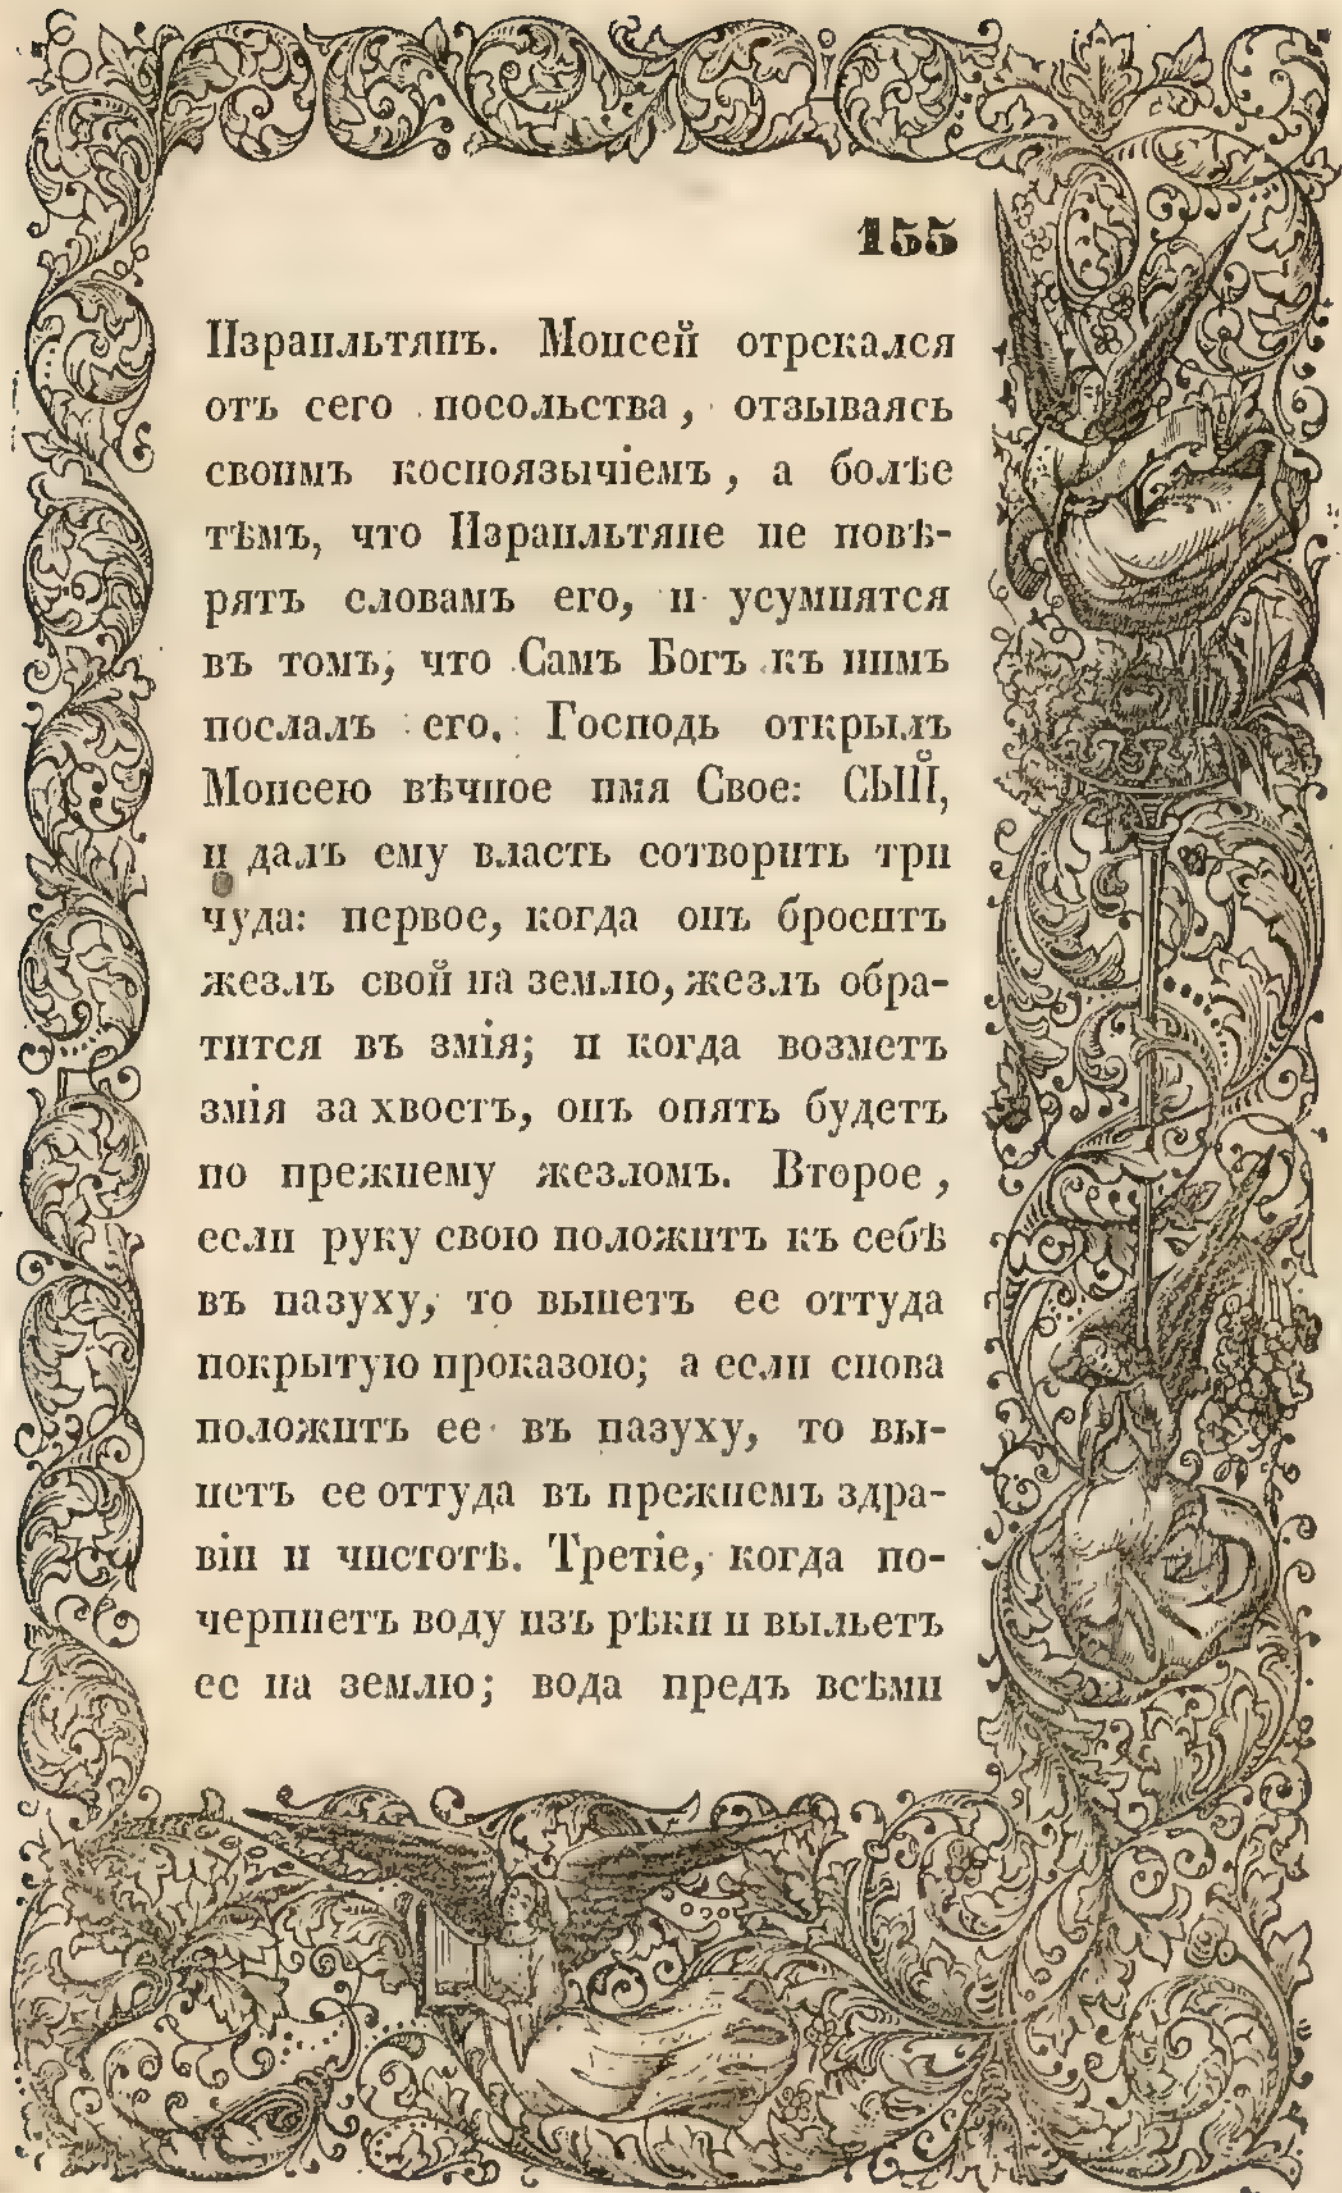 155
Израильтянъ. Моисей отрекался
отъ сего посольства, отзываясь
своимъ косноязычіемъ, а болѣе
тѣмъ, что Израильтяне не повѣ-
рятъ словамъ его, и усумнятся
въ томъ, что Самъ Богъ къ нимъ
послалъ его. Господь открылъ
Моисею вѣчное имя Свое: СЫЙ,
и далъ ему власть сотворить три
чуда: первое, когда онъ броситъ
жезлъ свой на землю, жезлъ обра-
тится въ змія; и когда возметъ
змія за хвостъ, онъ опять будетъ
по прежнему жезломъ. Второе,
если руку свою положитъ къ себѣ
въ пазуху, то вынетъ ее оттуда
покрытую проказою; а если снова
положитъ ее въ пазуху, то вы-
нетъ ее оттуда въ прежнемъ здра-
віи и чистотѣ. Третіе, когда по-
черпнетъ воду изъ рѣки и выльетъ
ее на землю; вода предъ всѣми